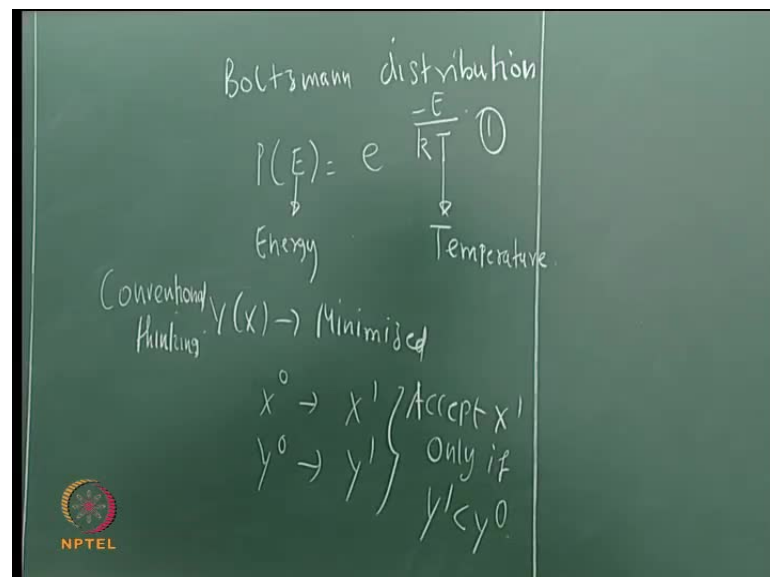 Boltzmann distribution
P(E) = e -E/kT ①
Energy Temperature.
Conventional thinking Y(X) → Minimized
X⁰ → X¹ } Accept X¹
Y⁰ → Y¹ } Only if
Y¹ < Y⁰.
NPTEL